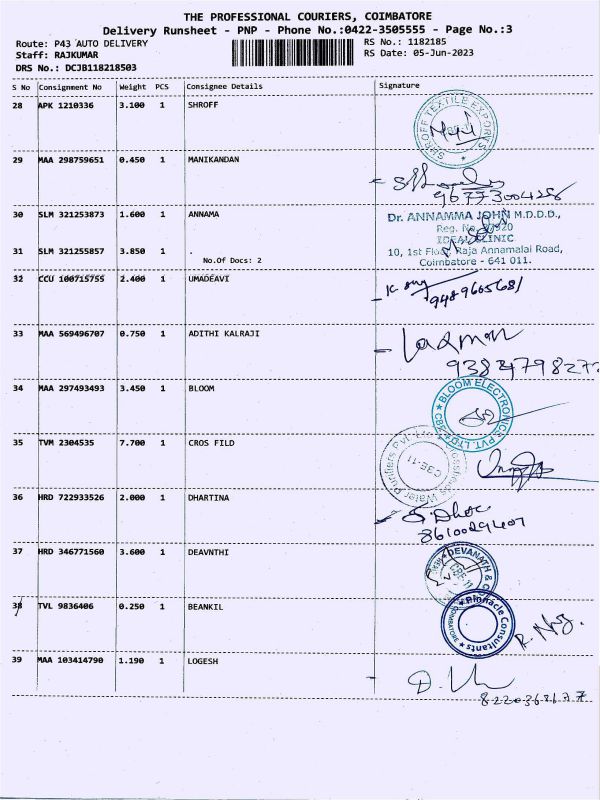 THE PROFESSIONAL COURIERS, COIMBATORE
Delivery Runsheet - PNP - Phone No.:0422-3505555 - Page No.:3
Route: P43 AUTO DELIVERY
RS No.: 1182185
Staff: RAJKUMAR
RS Date: 05-Jun-2023
DRS No.: DCJB118218503
S No Consignment No Weight PCS Consignee Details Signature
28 APK 1210336 3.100 1 SHROFF
SHROFF TEXTILE EXPORTS
29 MAA 298759651 0.450 1 MANIKANDAN
30 SLM 321253873 1.600 1 ANNAMA
Dr. ANNAMMA JOHN M.D.D.D.,
Reg. No.
IDEAL CLINIC
31 SLM 321255857 3.850 1 .
10, 1st Floor, Raja Annamalai Road,
No.Of Docs: 2
Coimbatore - 641 011.
32 CCU 100715755 2.400 1 UMADEAVI
9489665681
33 MAA 569496707 0.750 1 ADITHI KALRAJI
Laxman
34 MAA 297493493 3.450 1 BLOOM
BLOOM ELECTRONICS PVT. LTD.
CBE
35 TVM 2304535 7.700 1 CROS FILD
Water Purifiers Pvt. Ltd.
CBE-11
36 HRD 722933526 2.000 1 DHARTINA
37 HRD 346771560 3.600 1 DEAVNTHI
DEVANATH & C
38 TVL 9836406 0.250 1 BEANKIL
Pinnacle Consultants
COIMBATORE
39 MAA 103414790 1.190 1 LOGESH